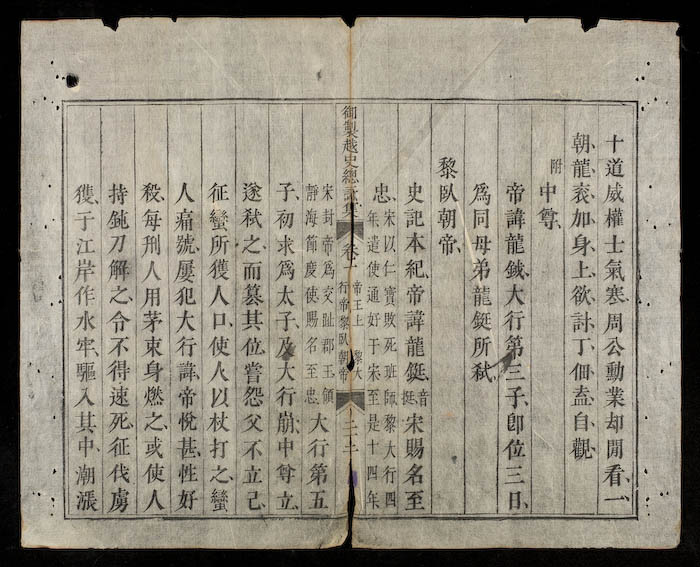 十道威權士氣寒、周公勳業却閒看、一
朝龍衮加身上、欲討丁佃盍自觀、
附中尊、
帝諱龍鉞、大行第三子、卽位三日、
爲同母弟龍鋌所弑、
黎臥朝帝、
史記本紀、帝諱龍鋌、音挺宋賜名至
忠、宋以仁寶敗死班師黎大行四
年遣使通好于宋至是十四年
御製越史總詠集 卷一 帝王上 黎大
行帝黎臥朝帝 二十
宋封帝爲交趾郡王領
靜海節度使賜名至忠大行第五
子、初求爲太子、及大行崩、中尊立、
遂弑之而簒其位、嘗怨父不立己、
征蠻所獲人口、使人以杖打之、蠻
人痛號、屢犯大行諱、帝悅甚、性好
殺、每刑人用茅束身燃之、或使人
持鈍刀解之、令不得速死、征伐虜
獲、于江岸作水牢、驅入其中、潮漲